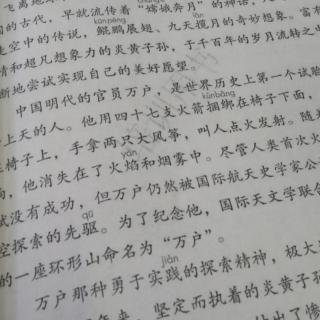 飞离地球
国的古代,早就流传着“嫦娥奔月”的神话,
kūn péng
走空中的传说,鲲鹏展翅、九天揽月的奇妙想象。富有
情和超凡想象力的炎黄子孙,于千百年的岁月流转之中
断地尝试实现自己的美好愿望。
中国明代的官员万户,是世界历史上第一个试验
kǔn bǎng
上天的人。他用四十七支火箭捆绑在椅子下面,
椅子上,手拿两只大风筝,叫人点火发射。随着
yàn
,他消失在了火焰和烟雾中。尽管人类首次火
试没有成功,但万户仍然被国际航天史学家公
qū
空探索的先驱。为了纪念他,国际天文学联合
的一座环形山命名为“万户”。
jiàn
万户那种勇于实践的探索精神,极大
年来,坚定而执着的炎黄子孙
出了惨